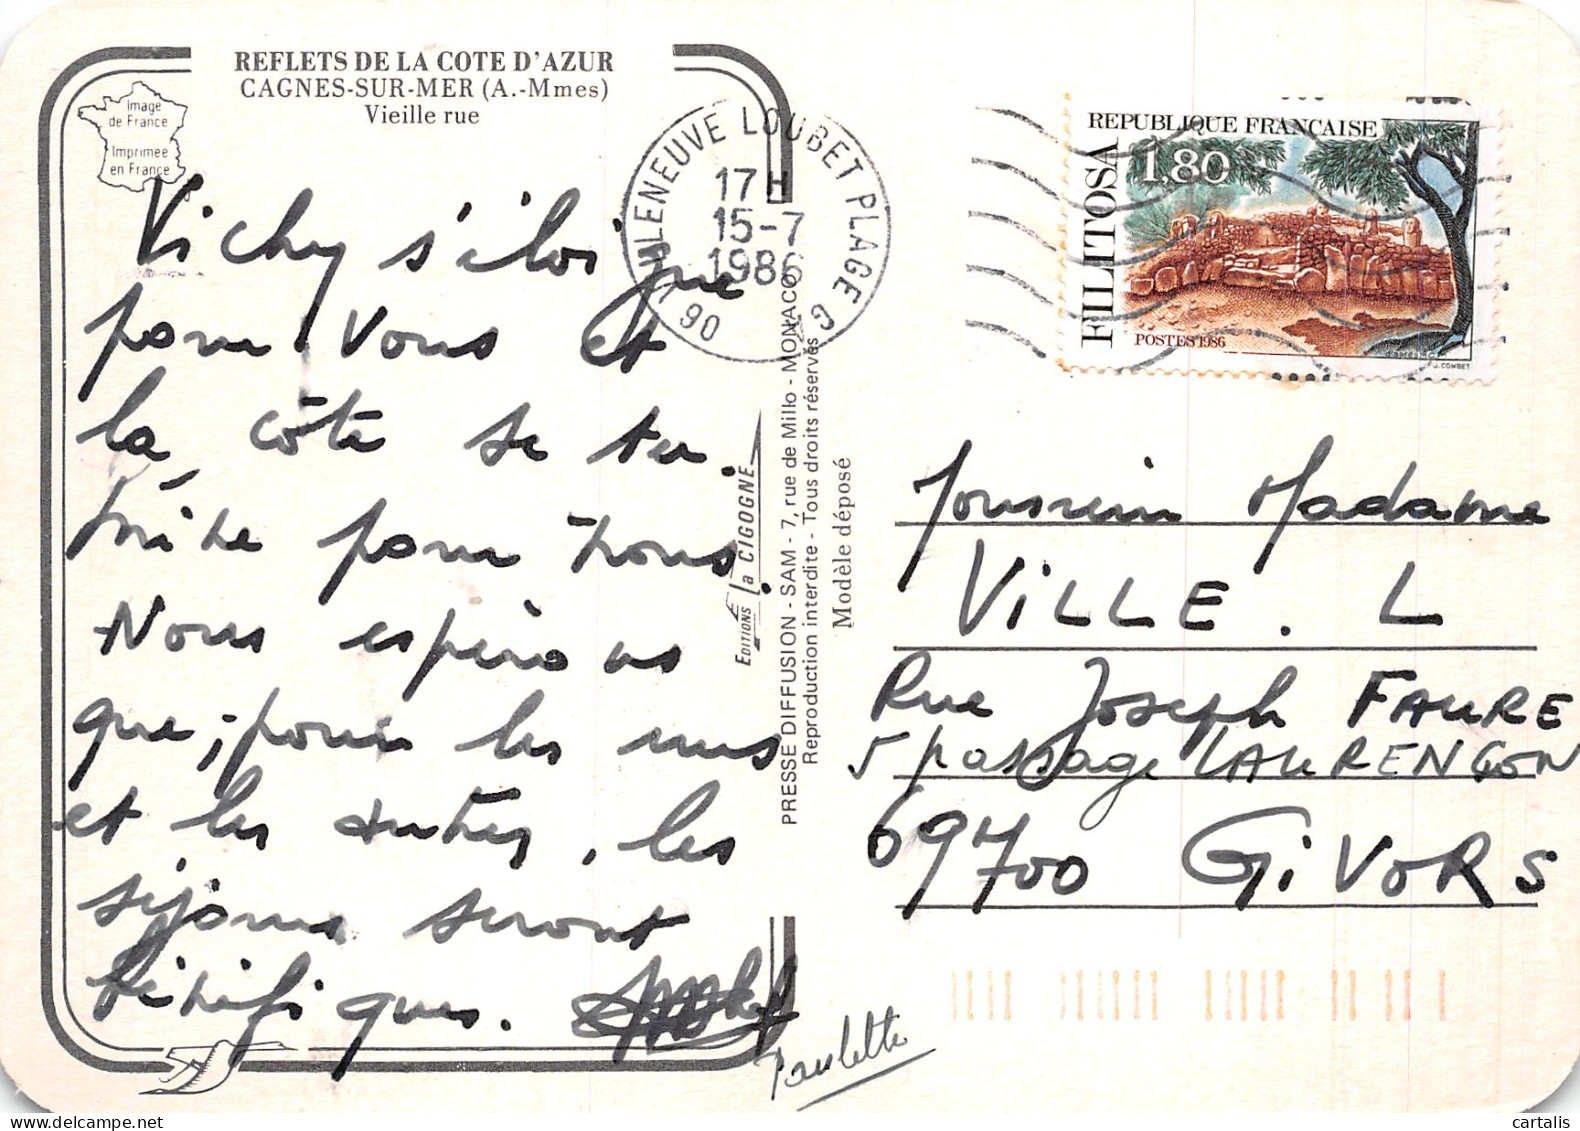 REFLETS DE LA COTE D'AZUR
CAGNES-SUR-MER (A.-Mmes)
Vieille rue
Image
de France
Imprimée
en France
Vichy s'éloigne
pour vous et
la côte se ter.
mine pour nous.
Nous espérons
que, pour les uns
et les autres, les
séjours seront
bénéfiques.
Paulette
EDITIONS La CIGOGNE
PRESSE DIFFUSION - SAM - 7, rue de Millo - MONACO
Reproduction interdite - Tous droits réservés
Modèle déposé
VILLENEUVE LOUBET PLAGE
17 H
15-7
1986
06
REPUBLIQUE FRANÇAISE
1,80
FILITOSA
POSTES 1986
J. COMBET
Monsieur Madame
ViLLE. L
Rue Joseph FAURE
5 passage LAURENÇON
69700 GiVORS
cartalis